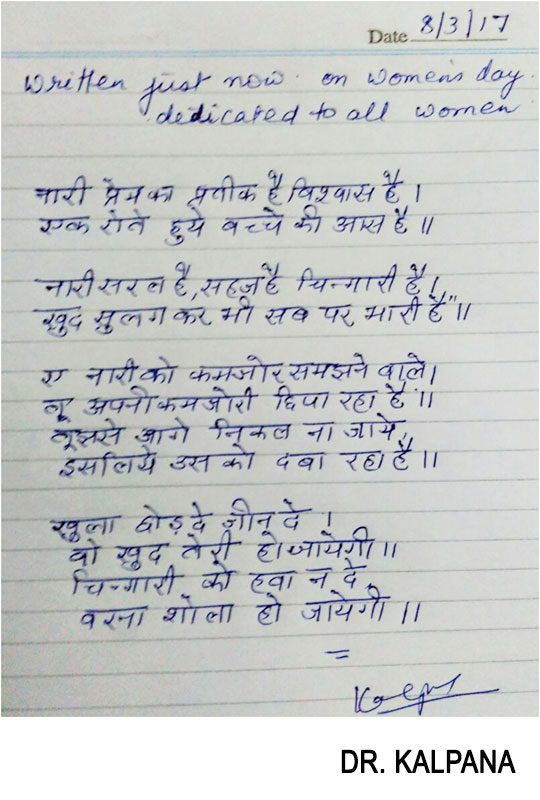 Date 8/3/17
Written just now on women's day.
dedicated to all women
नारी प्रेम का प्रतीक है विश्वास है ।
एक रोते हुये बच्चे की आस है ॥
नारी सरल है, सहज है चिन्गारी है ।
खुद सुलग कर भी सब पर भारी है" ॥
ए नारी को कमजोर समझने वाले ।
तू अपनी कमजोरी छिपा रहा है ॥
तुझसे आगे निकल ना जाये,
इसलिये उसको दबा रहा है ॥
खुला छोड़ दे जीन दे ।
वो खुद तेरी हो जायेगी ॥
चिन्गारी को हवा न दे,
वरना शोला हो जायेगी ॥
DR. KALPANA